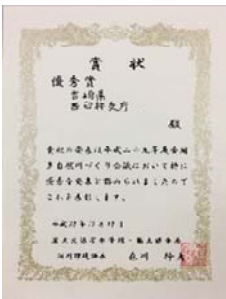 賞状
優秀賞
宮崎県
西臼杵支庁
殿
貴殿の発表は平成二十九年度全国
多自然川づくり会議において特に
優秀な発表と認められましたので
これを表彰します。
平成29年12月
国土交通省水管理・国土保全局
河川環境課長